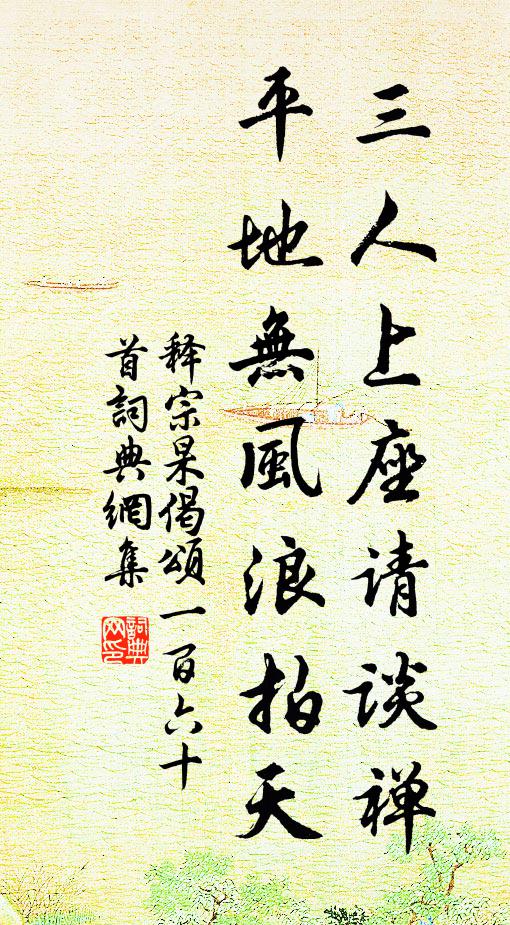 三人上座请谈禅
平地無風浪拍天
释宗杲偈颂一百六十
首詞典網集
詞典网印